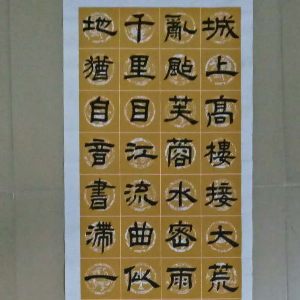 城上髙樓接大荒
亂颭芙蓉水密雨
千里目江流曲似
地猶自音書滯一